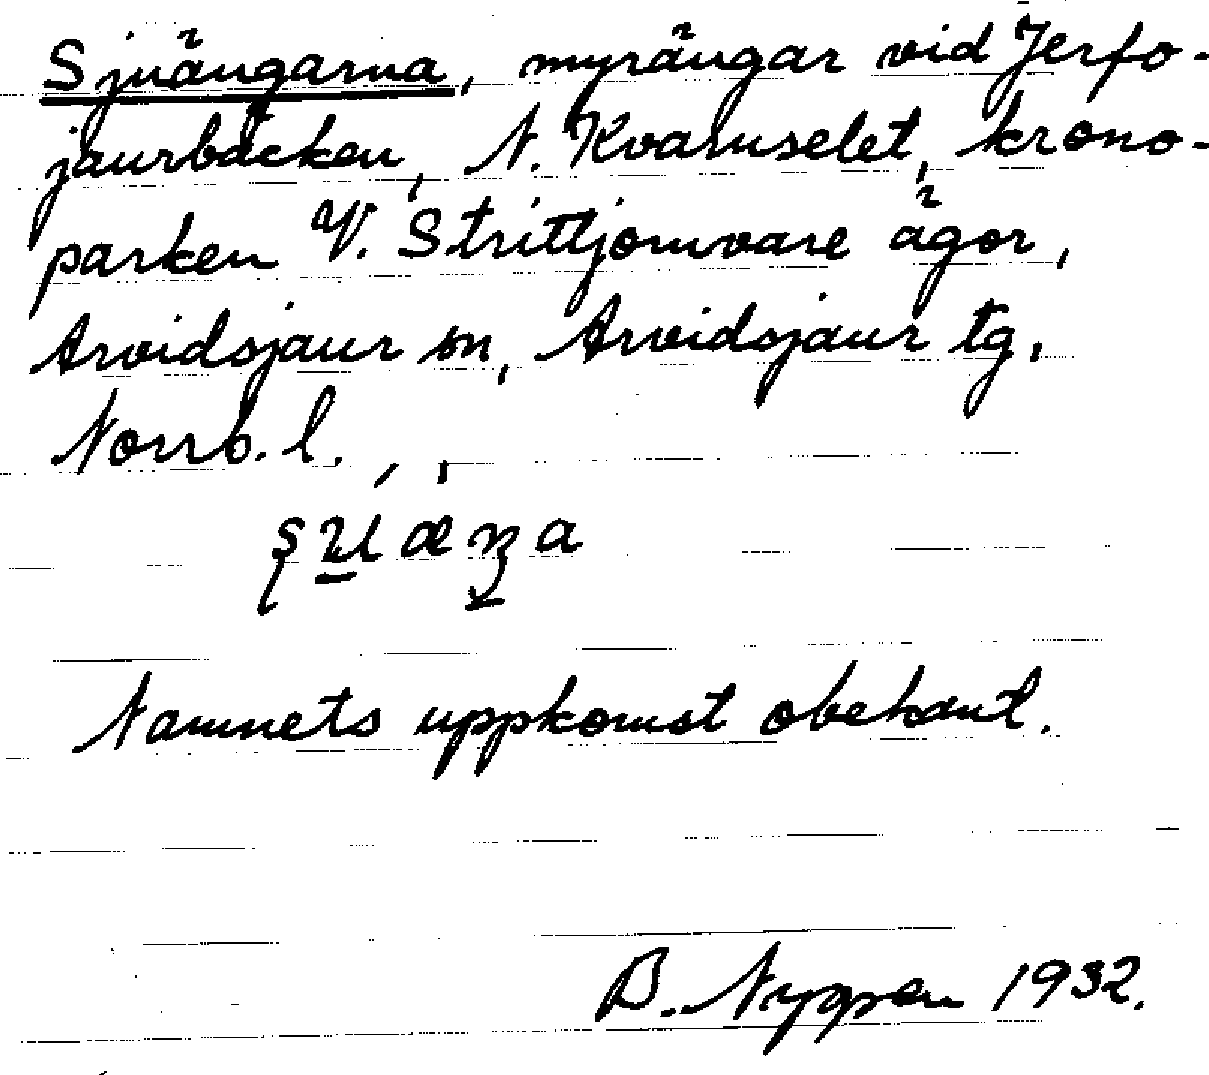 Sjuängarna, myrängar vid Jerfo-
jaurbäcken, N. Kvarnselet, krono-
parken V. Strittjomvare ägor,
Arvidsjaur sn, Arvidsjaur tg,
Norrb. l.
Namnets uppkomst obekant.
B. Nyppen 1932.